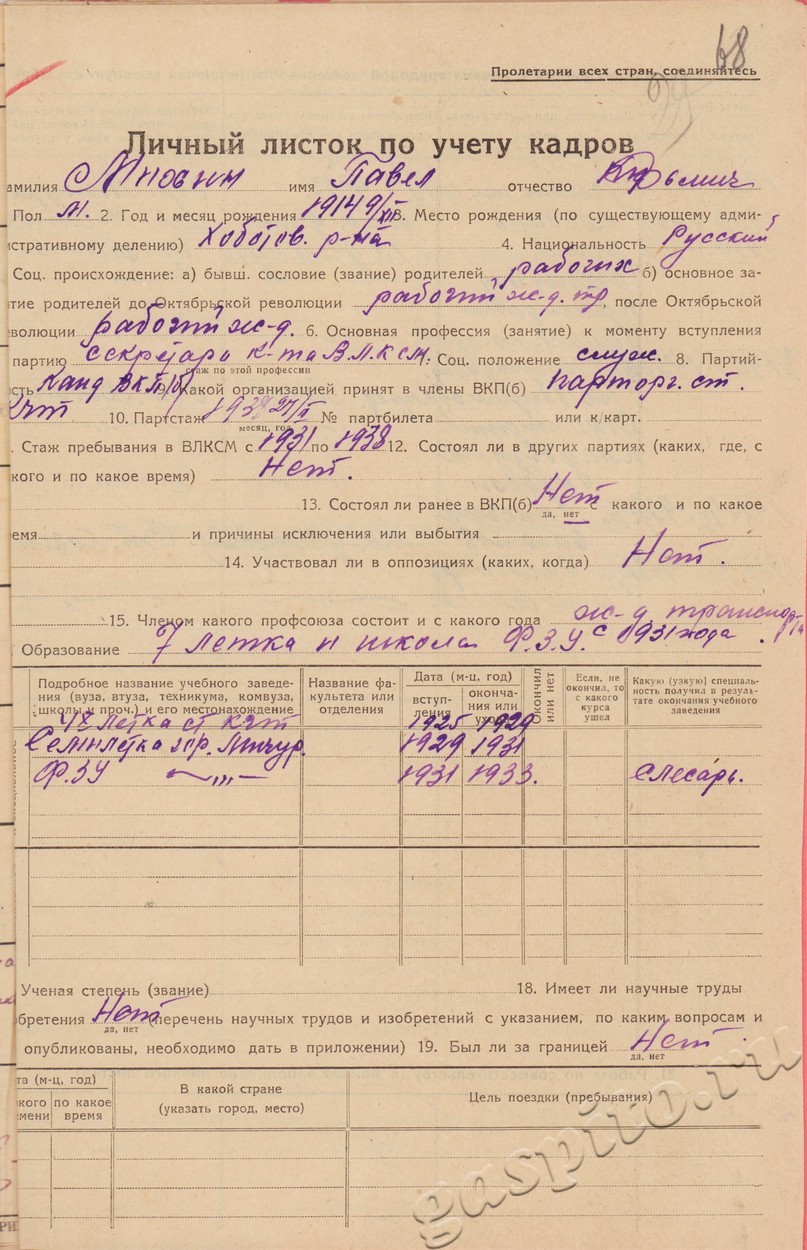 68
Пролетарии всех стран, соединяйтесь
Личный листок по учету кадров
амилия Мносин имя Павел отчество
Пол М. 2. Год и месяц рождения 1914 9/XII 3. Место рождения (по существующему адми-
истративному делению) Хоботов. р-на 4. Национальность Русский
Соц. происхождение: а) бывш. сословие (звание) родителей рабочих б) основное за-
тие родителей до Октябрьской революции рабочий ж-д. тр, после Октябрьской
еволюции рабочий ж-д. 6. Основная профессия (занятие) к моменту вступления
партию секретарь к-та ВЛКСМ. Соц. положение служ. 8. Партий-
стаж по этой профессии
сть Канд ВКП/б/ какой организацией принят в члены ВКП(б) парторг. ст.
Кчт 10. Партстаж № партбилета или к/карт.
месяц, год
. Стаж пребывания в ВЛКСМ с 1931 по 1938 12. Состоял ли в других партиях (каких, где, с
кого и по какое время) Нет.
13. Состоял ли ранее в ВКП(б) Нет с какого и по какое
да, нет
емя и причины исключения или выбытия
14. Участвовал ли в оппозициях (каких, когда) Нет.
15. Членом какого профсоюза состоит и с какого года ж-д транспорта
Образование 7 летка и школа Ф.З.У. с 1931 года.
Подробное название учебного заведе-
ния (вуза, втуза, техникума, комвуза,
школы и проч.) и его местонахождение
Название фа-
культета или
отделения
Дата (м-ц, год)
вступ-
ления
оконча-
ния или
ухода
Окончил
или нет
Если, не
окончил, то
с какого
курса
ушел
Какую (узкую) специаль-
ность получил в резуль-
тате окончания учебного
заведения
4х летка ст Кчт 1925 1929
Семилетка гор. Мичур. 1929 1931
ФЗУ —„— 1931 1933. слесарь.
Ученая степень (звание) 18. Имеет ли научные труды
обретения Нет (перечень научных трудов и изобретений с указанием, по каким вопросам и
да, нет
опубликованы, необходимо дать в приложении) 19. Был ли за границей Нет.
да, нет
та (м-ц, год)
кого
мени
по какое
время
В какой стране
(указать город, место)
Цель поездки (пребывания)
gaspito.ru